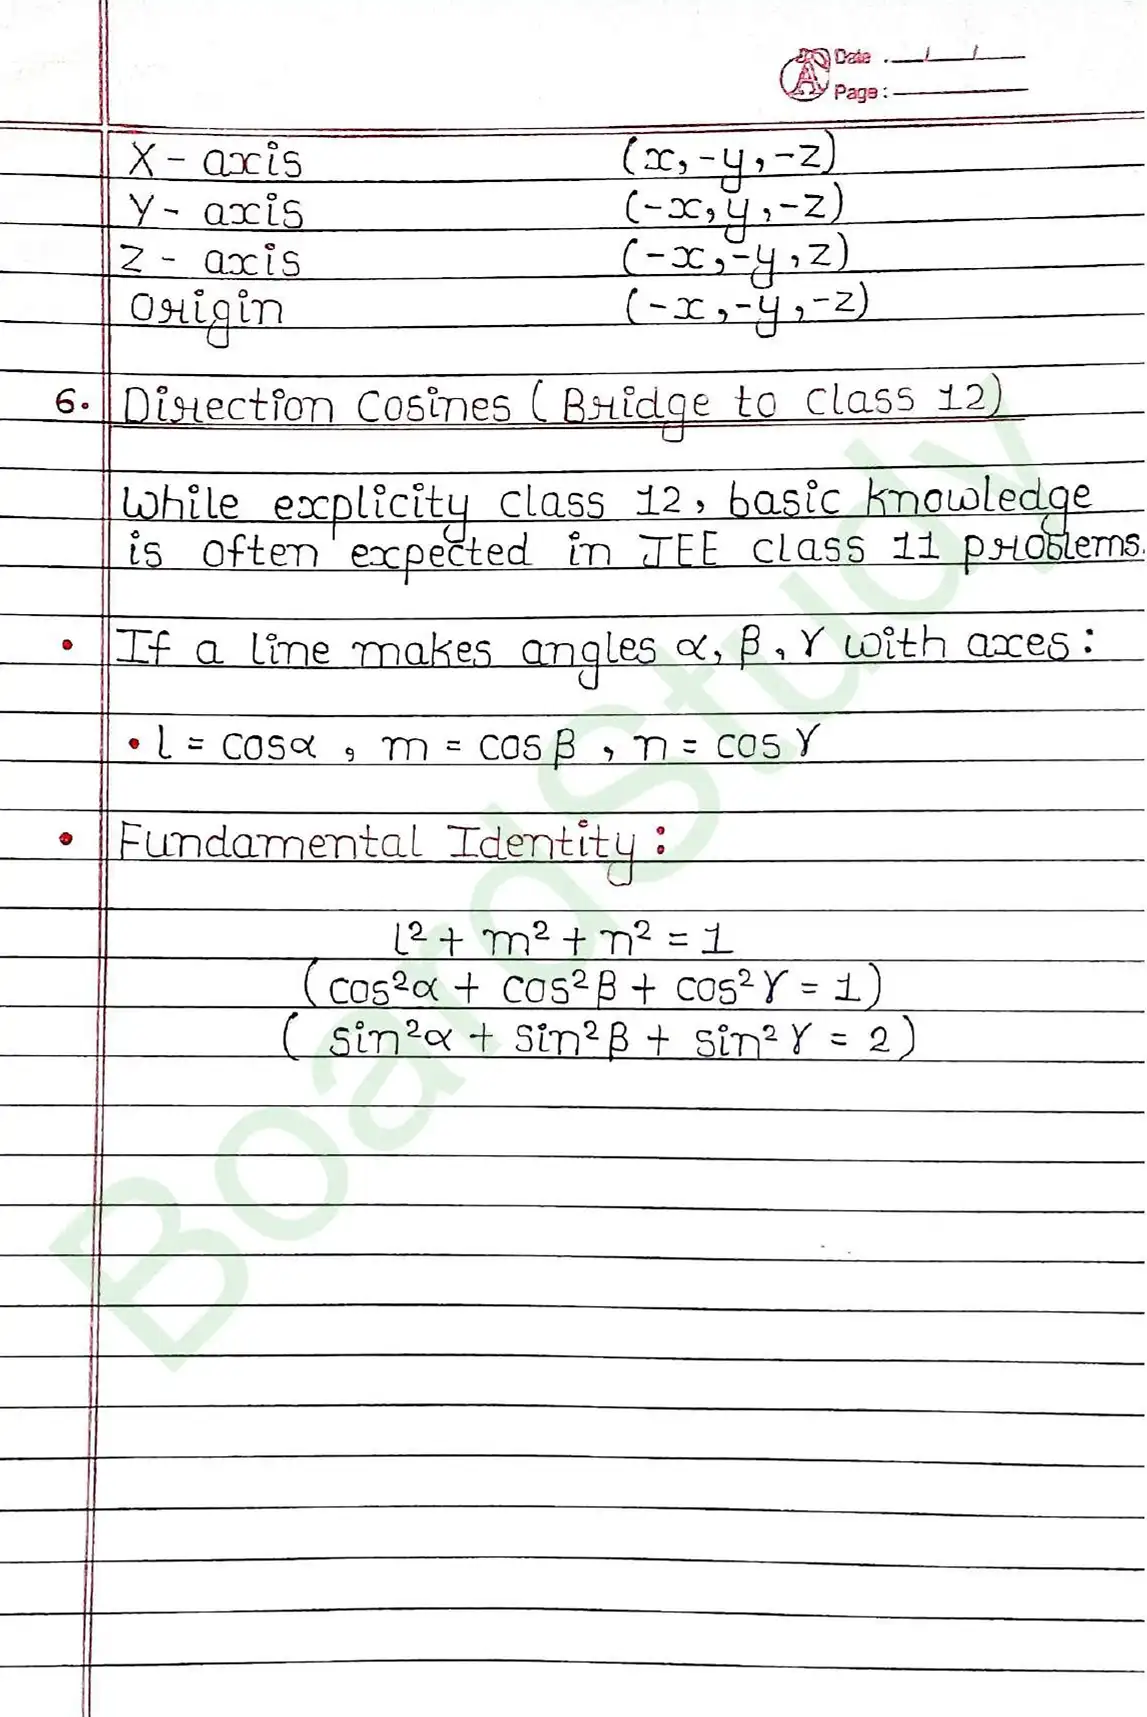 Date . / /
Page :
X - axis (x, -y, -z)
Y - axis (-x, y, -z)
Z - axis (-x, -y, z)
Origin (-x, -y, -z)
6. Direction Cosines (Bridge to Class 12)
While explicity class 12, basic knowledge
is often expected in JEE class 11 problems.
• If a line makes angles α, β, γ with axes :
• l = cosα , m = cos β , n = cos γ
• Fundamental Identity :
l² + m² + n² = 1
(cos²α + cos²β + cos²γ = 1)
( sin²α + sin²β + sin²γ = 2 )
BoardStudy